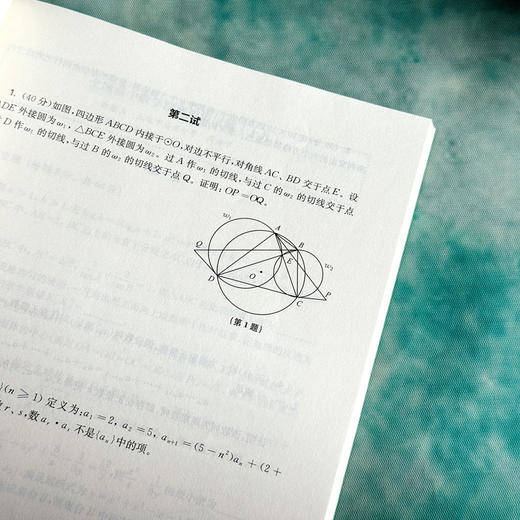 第二试
1. (40分)如图,四边形ABCD内接于⊙O,对边不平行,对角线AC、BD交于点E。设
ADE外接圆为w₁,△BCE外接圆为w₂。过A作w₁的切线,与过C的w₂的切线交于点
过D作w₁的切线,与过B的w₂的切线交于点Q。证明:OP=OQ。
w₁
A
B
Q
E
w₂
D
O
P
C
(第1题)
(n≥1)定义为:a₁=2, a₂=5, aₙ₊₁=(5-n²)aₙ+(2+
r、s,数aᵣ·aₛ不是{aₙ}中的项。